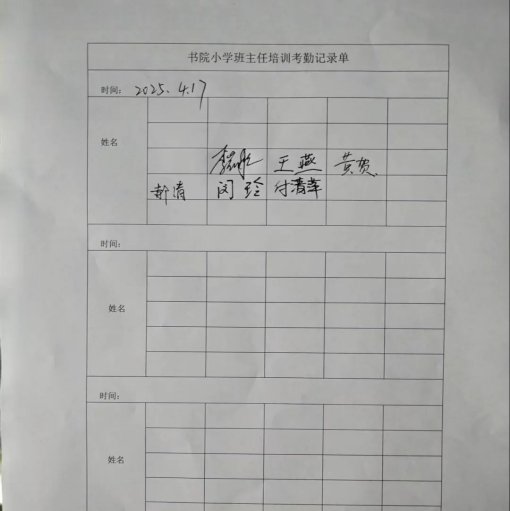 书院小学班主任培训考勤记录单
时间: 2025.4.17
姓名
王燕 黄贺
靳清 闵玲 付清苹
时间:
姓名
时间:
姓名